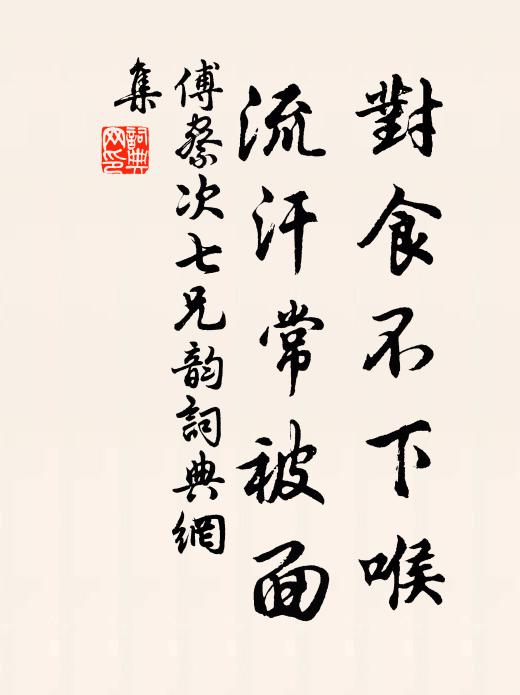 對食不下喉
流汗常被面
傅察次七兄韵詞典網
集
詞典網印